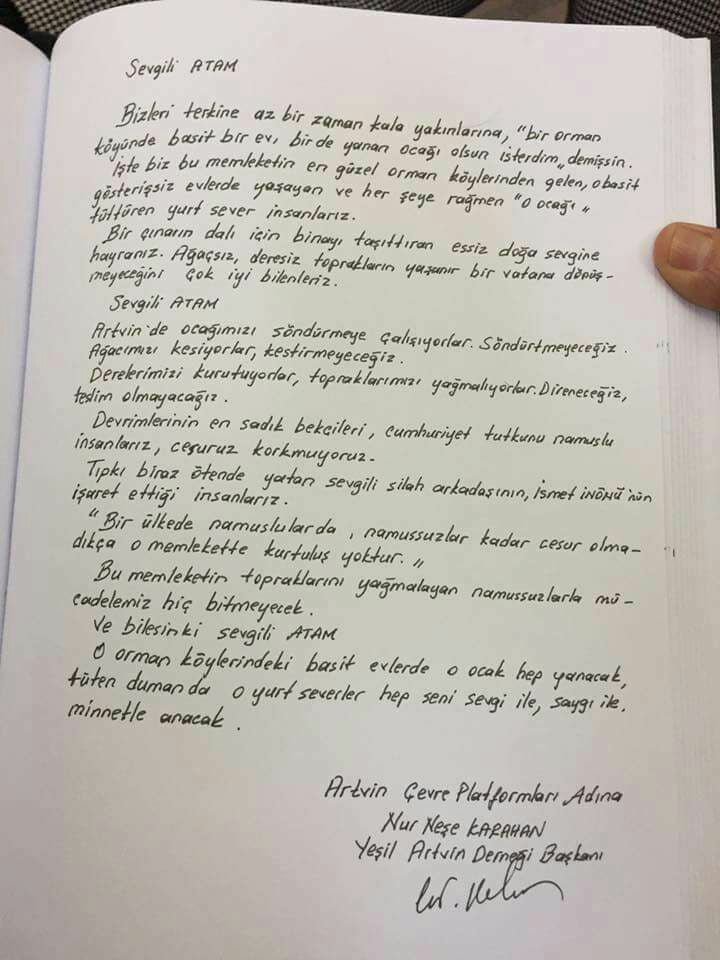 Sevgili ATAM
Bizleri terkine az bir zaman kala yakınlarına, "bir orman
köyünde basit bir evi, bir de yanan ocağı olsun isterdim„ demişsin.
İşte biz bu memleketin en güzel orman köylerinden gelen, o basit
gösterişsiz evlerde yaşayan ve her şeye rağmen "o ocağı„
tüttüren yurt sever insanlarız.
Bir çınarın dalı için binayı taşıttıran essiz doğa sevgine
hayranız. Ağaçsız, deresiz toprakların yaşanır bir vatana dönüş-
meyeceğini çok iyi bilenleriz.
Sevgili ATAM
Artvin'de ocağımızı söndürmeye çalışıyorlar. Söndürtmeyeceğiz.
Ağacımızı kesiyorlar, kestirmeyeceğiz.
Derelerimizi kurutuyorlar, topraklarımızı yağmalıyorlar. Direneceğiz,
teslim olmayacağız.
Devrimlerinin en sadık bekçileri, cumhuriyet tutkunu namuslu
insanlarız, cesuruz korkmuyoruz.
Tıpkı biraz ötende yatan sevgili silah arkadaşının, İsmet İNÖNÜ'nün
işaret ettiği insanlarız.
"Bir ülkede namuslularda, namussuzlar kadar cesur olma-
dıkça o memlekette kurtuluş yoktur.„
Bu memleketin topraklarını yağmalayan namussuzlarla mü-
cadelemiz hiç bitmeyecek.
Ve bilesinki sevgili ATAM
O orman köylerindeki basit evlerde o ocak hep yanacak,
tüten dumanda o yurt severler hep seni sevgi ile, saygı ile,
minnetle anacak.
Artvin Çevre Platformları Adına
Nur Neşe KARAHAN
Yeşil Artvin Derneği Başkanı